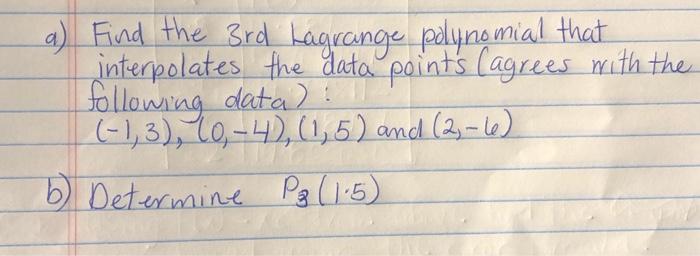 a) Find the 3rd Lagrange polynomial that
interpolates the data points (agrees with the
following data):
(-1,3), (0,-4), (1,5) and (2,-6)
b) Determine P₃(1.5)